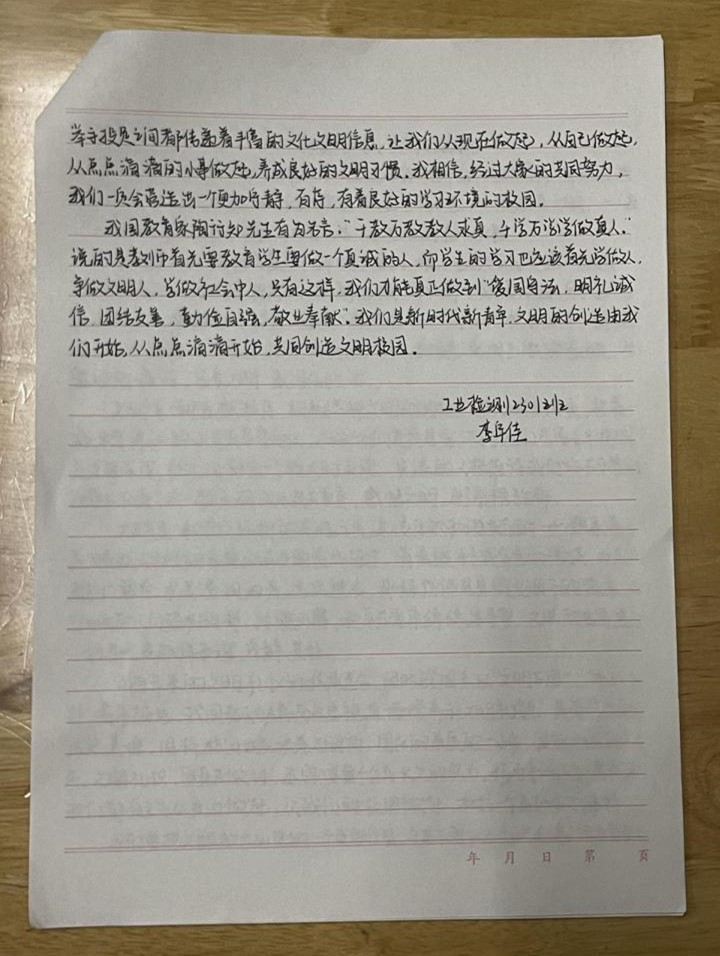 举手投足之间都传递着丰富的文化文明信息,让我们从现在做起,从自己做起,
从点点滴滴的小事做起,养成良好的文明习惯。我相信,经过大家的共同努力,
我们一定会营造出一个更加宁静,有序,有着良好的学习环境的校园。
我国教育家陶行知先生有句名言:“千教万教教人求真,千学万学学做真人。”
说的是教师首先要教育学生要做一个真诚的人,而学生的学习也应该首先学做人,
争做文明人,学做社会中人,只有这样,我们才能真正做到“爱国守法,明礼诚
信,团结友善,勤俭自强,敬业奉献”。我们是新时代新青年,文明的创造由我
们开始,从点点滴滴开始,共同创造文明校园。
工业检测2301班
李佳
年 月 日 第 页